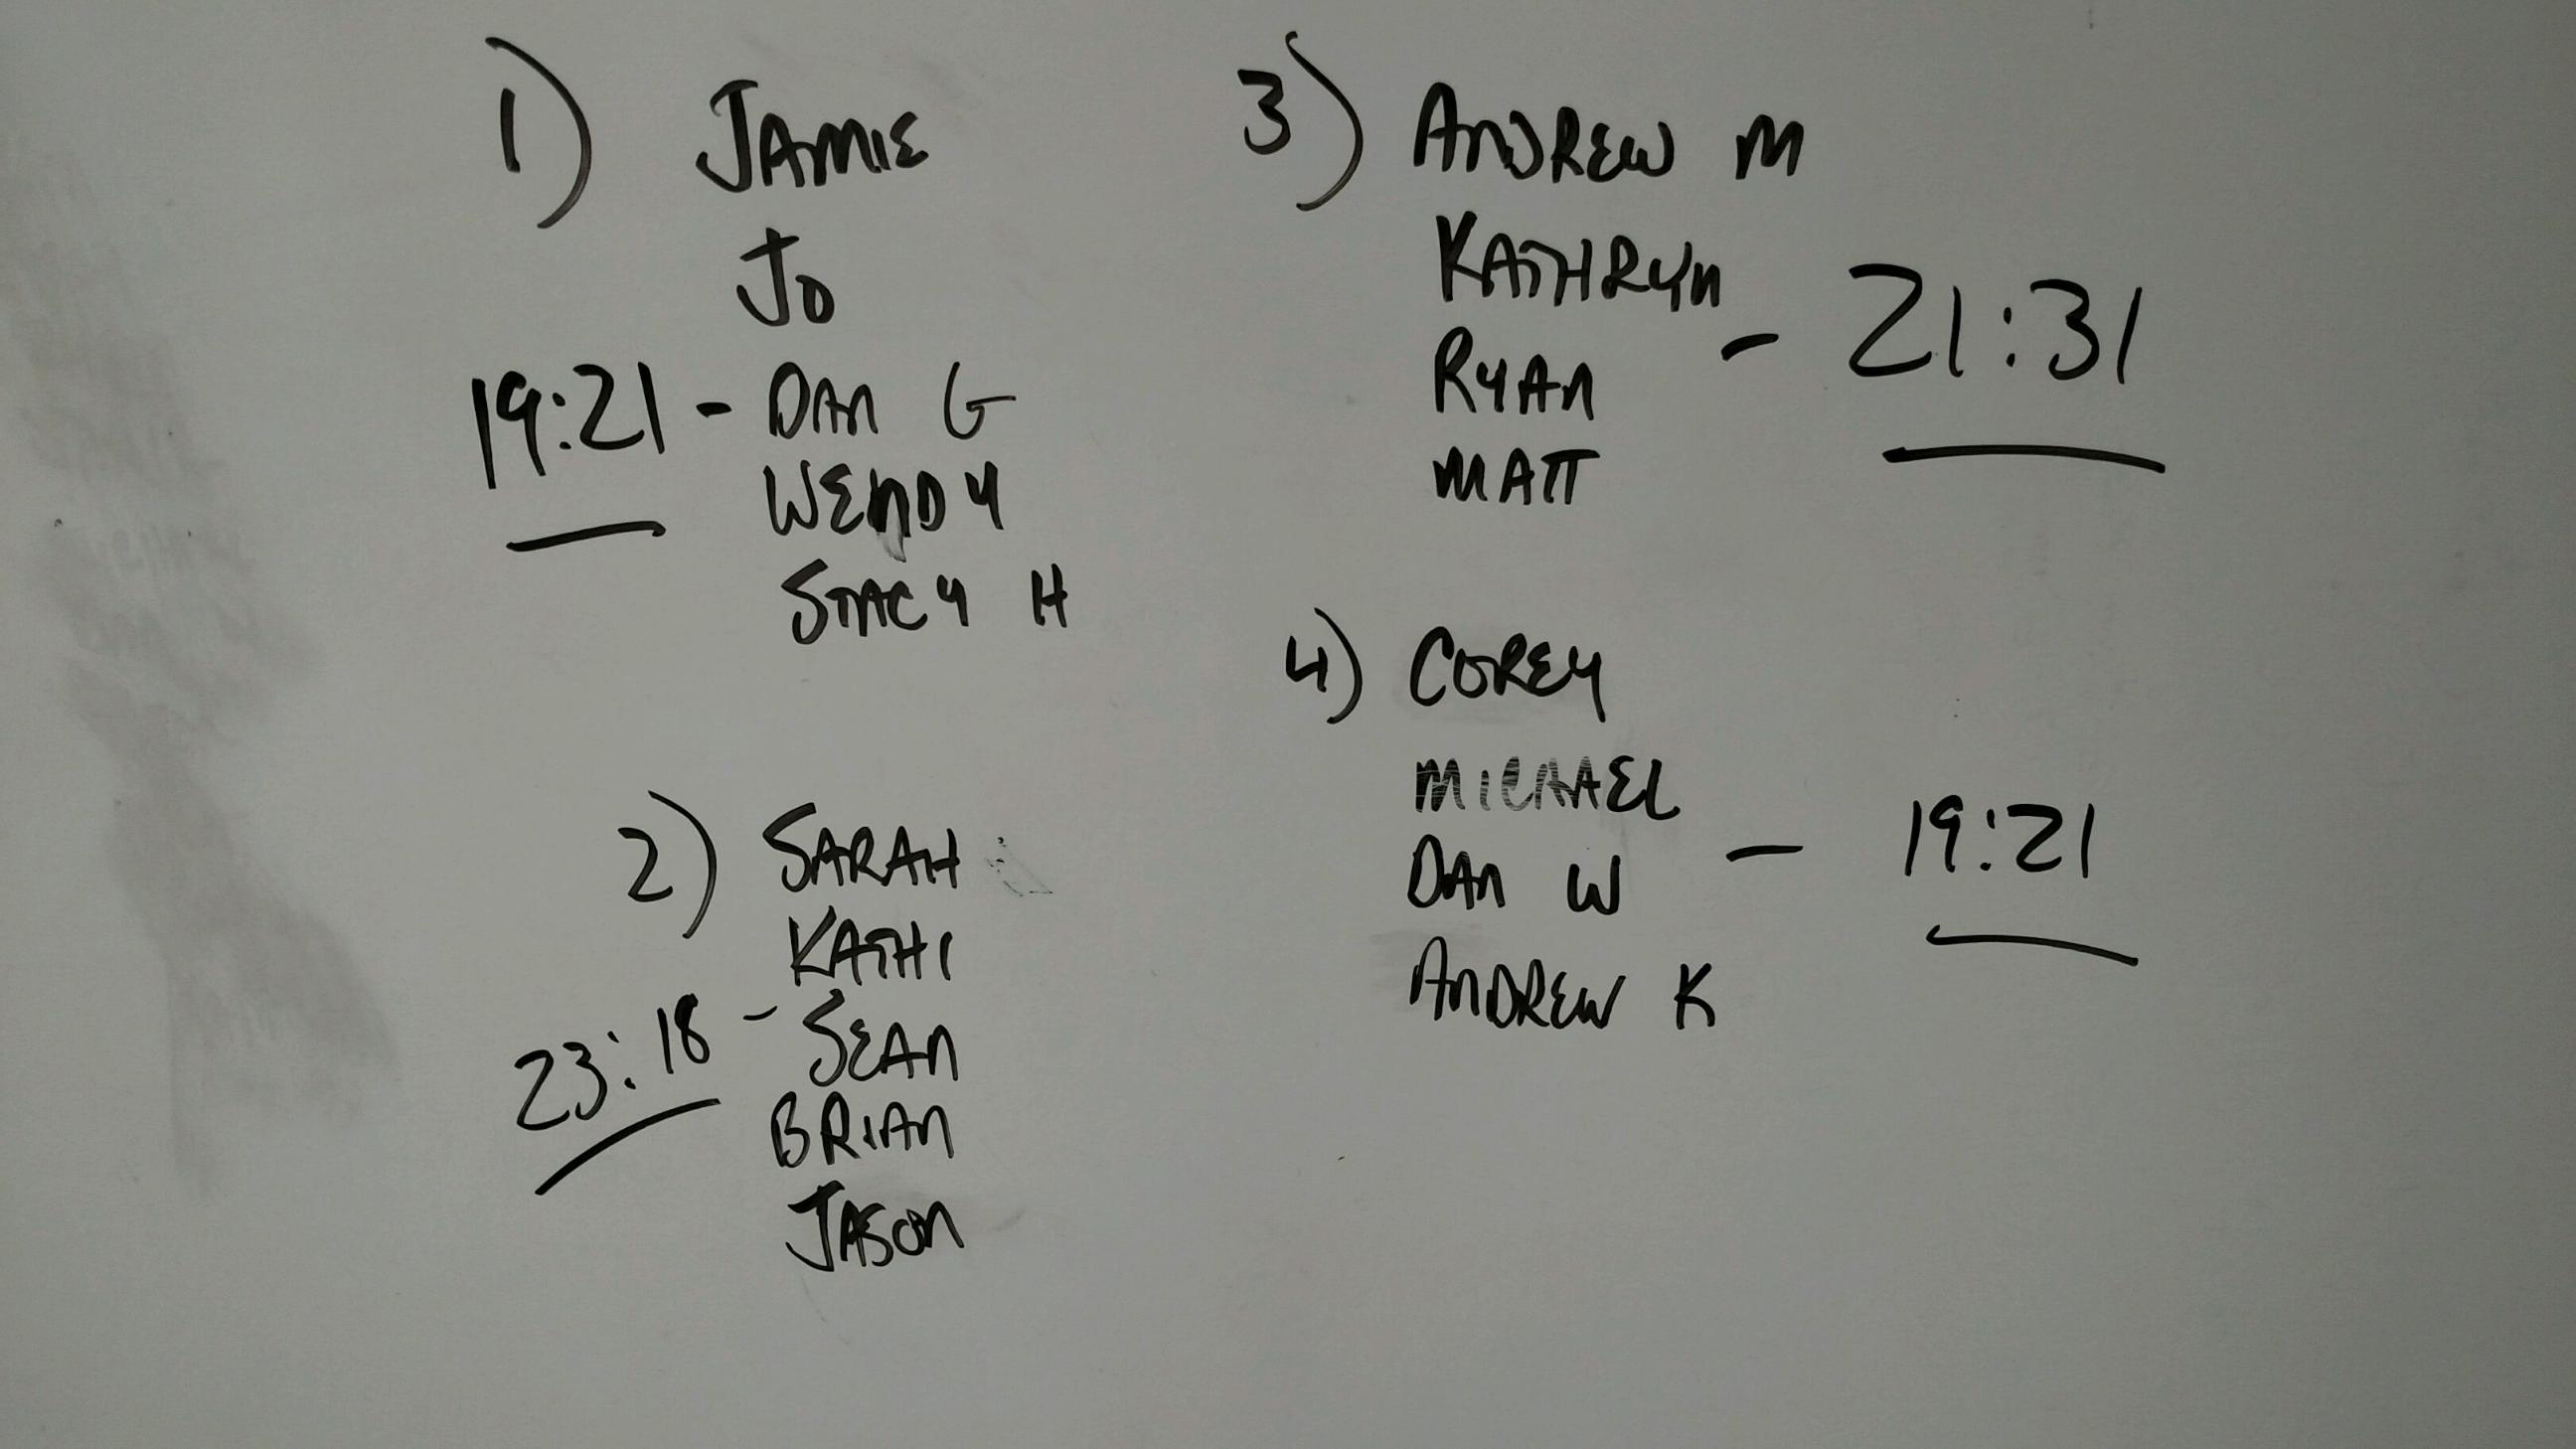 1) JAMIE
JO
19:21 - DAN G
WENDY
STACY H
2) SARAH
KATHI
23:18 - SEAN
BRIAN
JASON
3) ANDREW M
KATHRYN
- 21:31
RYAN
MATT
4) COREY
MICHAEL
DAN W - 19:21
ANDREW K